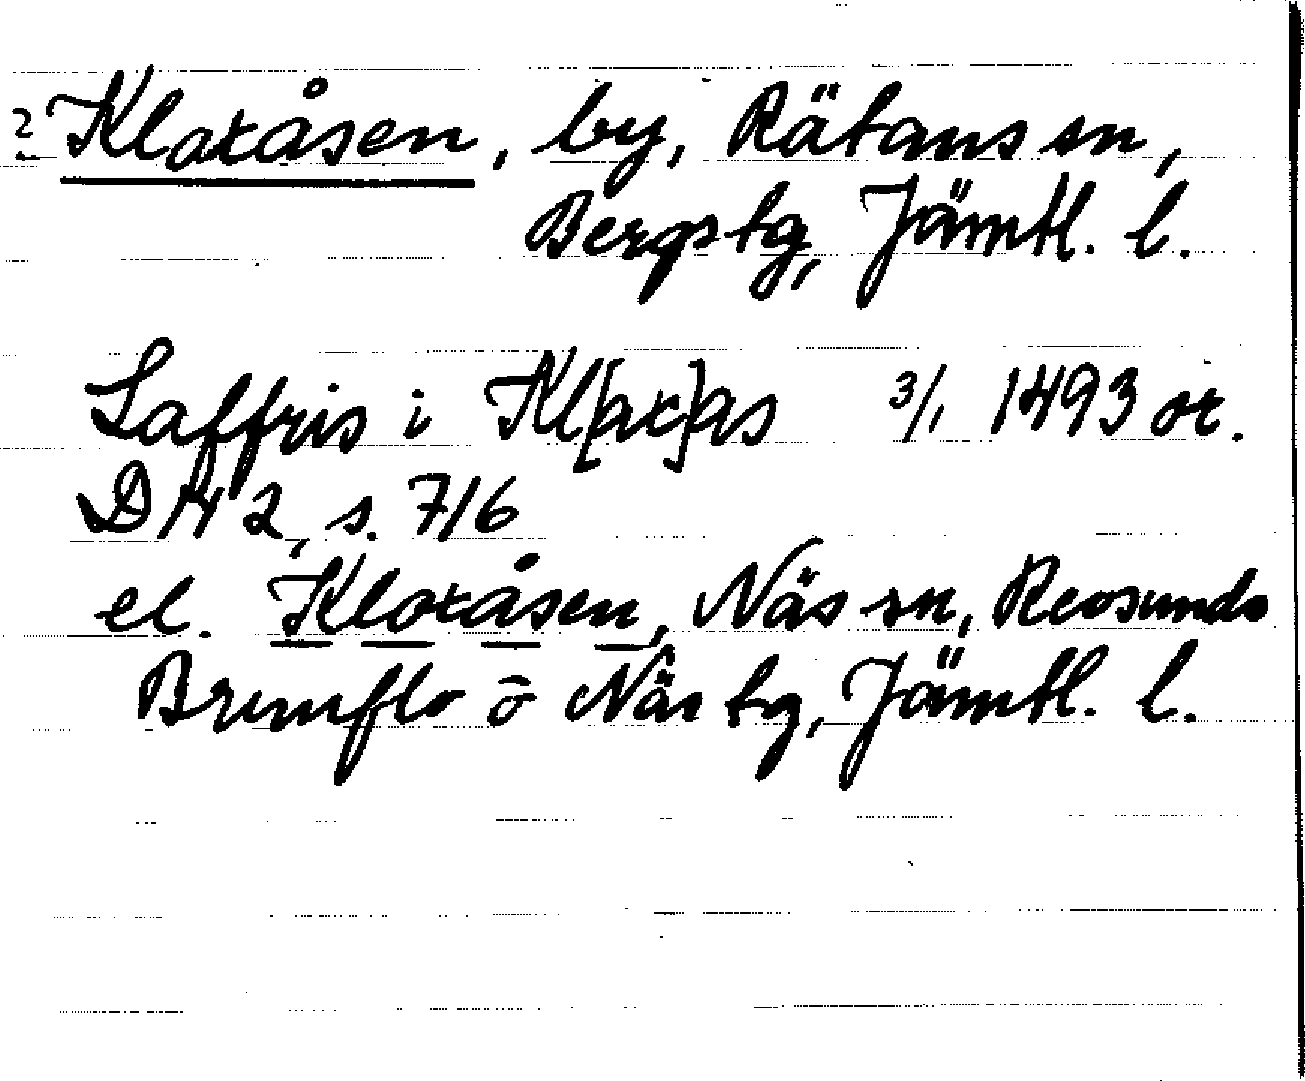 ? Klaxåsen, by, Rätans sn,
Bergs tg, Jämtl. l.
Saffris i Kl[ax]as 3/1 1493 or.
DN 2, s. 716
el. Kloxåsen, Näs sn, Revsunds
Brunflo o Näs tg, Jämtl. l.